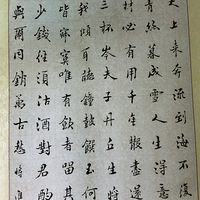 天上來奔流到海不復
青絲暮成雪人生得意
材必有用千金散盡還
三杯岑夫子丹丘生將
我傾耳聽鐘鼓饌玉何
皆寂寞唯有飲者留其
少錢徑須沽酒對君酌
與爾同銷萬古愁時